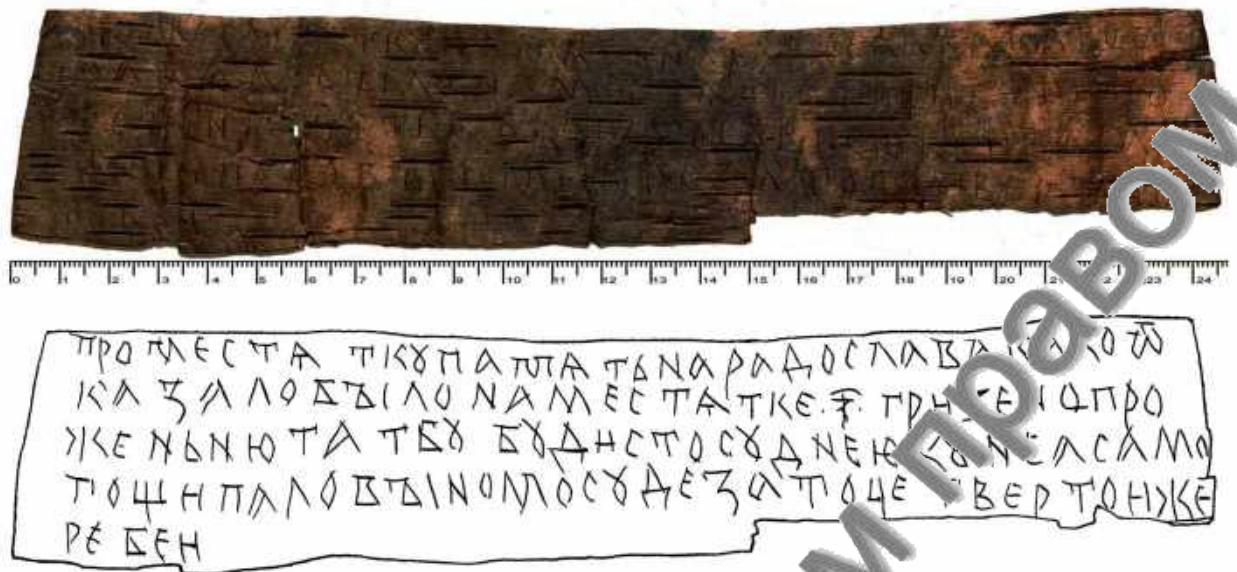 0 1 2 3 4 5 6 7 8 9 10 11 12 13 14 15 16 17 18 19 20 23 24
ПРО МЕСТѦТКУ ПАМѦТЬ НА РАДОСЛАВА Ѿ
КАЗАЛО БЪІЛО НАМЕСТѦТКЕ·З· ПРО
ЖЕНЬНЮ ТАТБУ БУДИСТОСУДНЕЮ САМО
ТОЩИПАЛОВЪІНОМОСУДЕЗАТОЦЕ ВЕРТОИЖЕ
РЕБЕИ
м правом